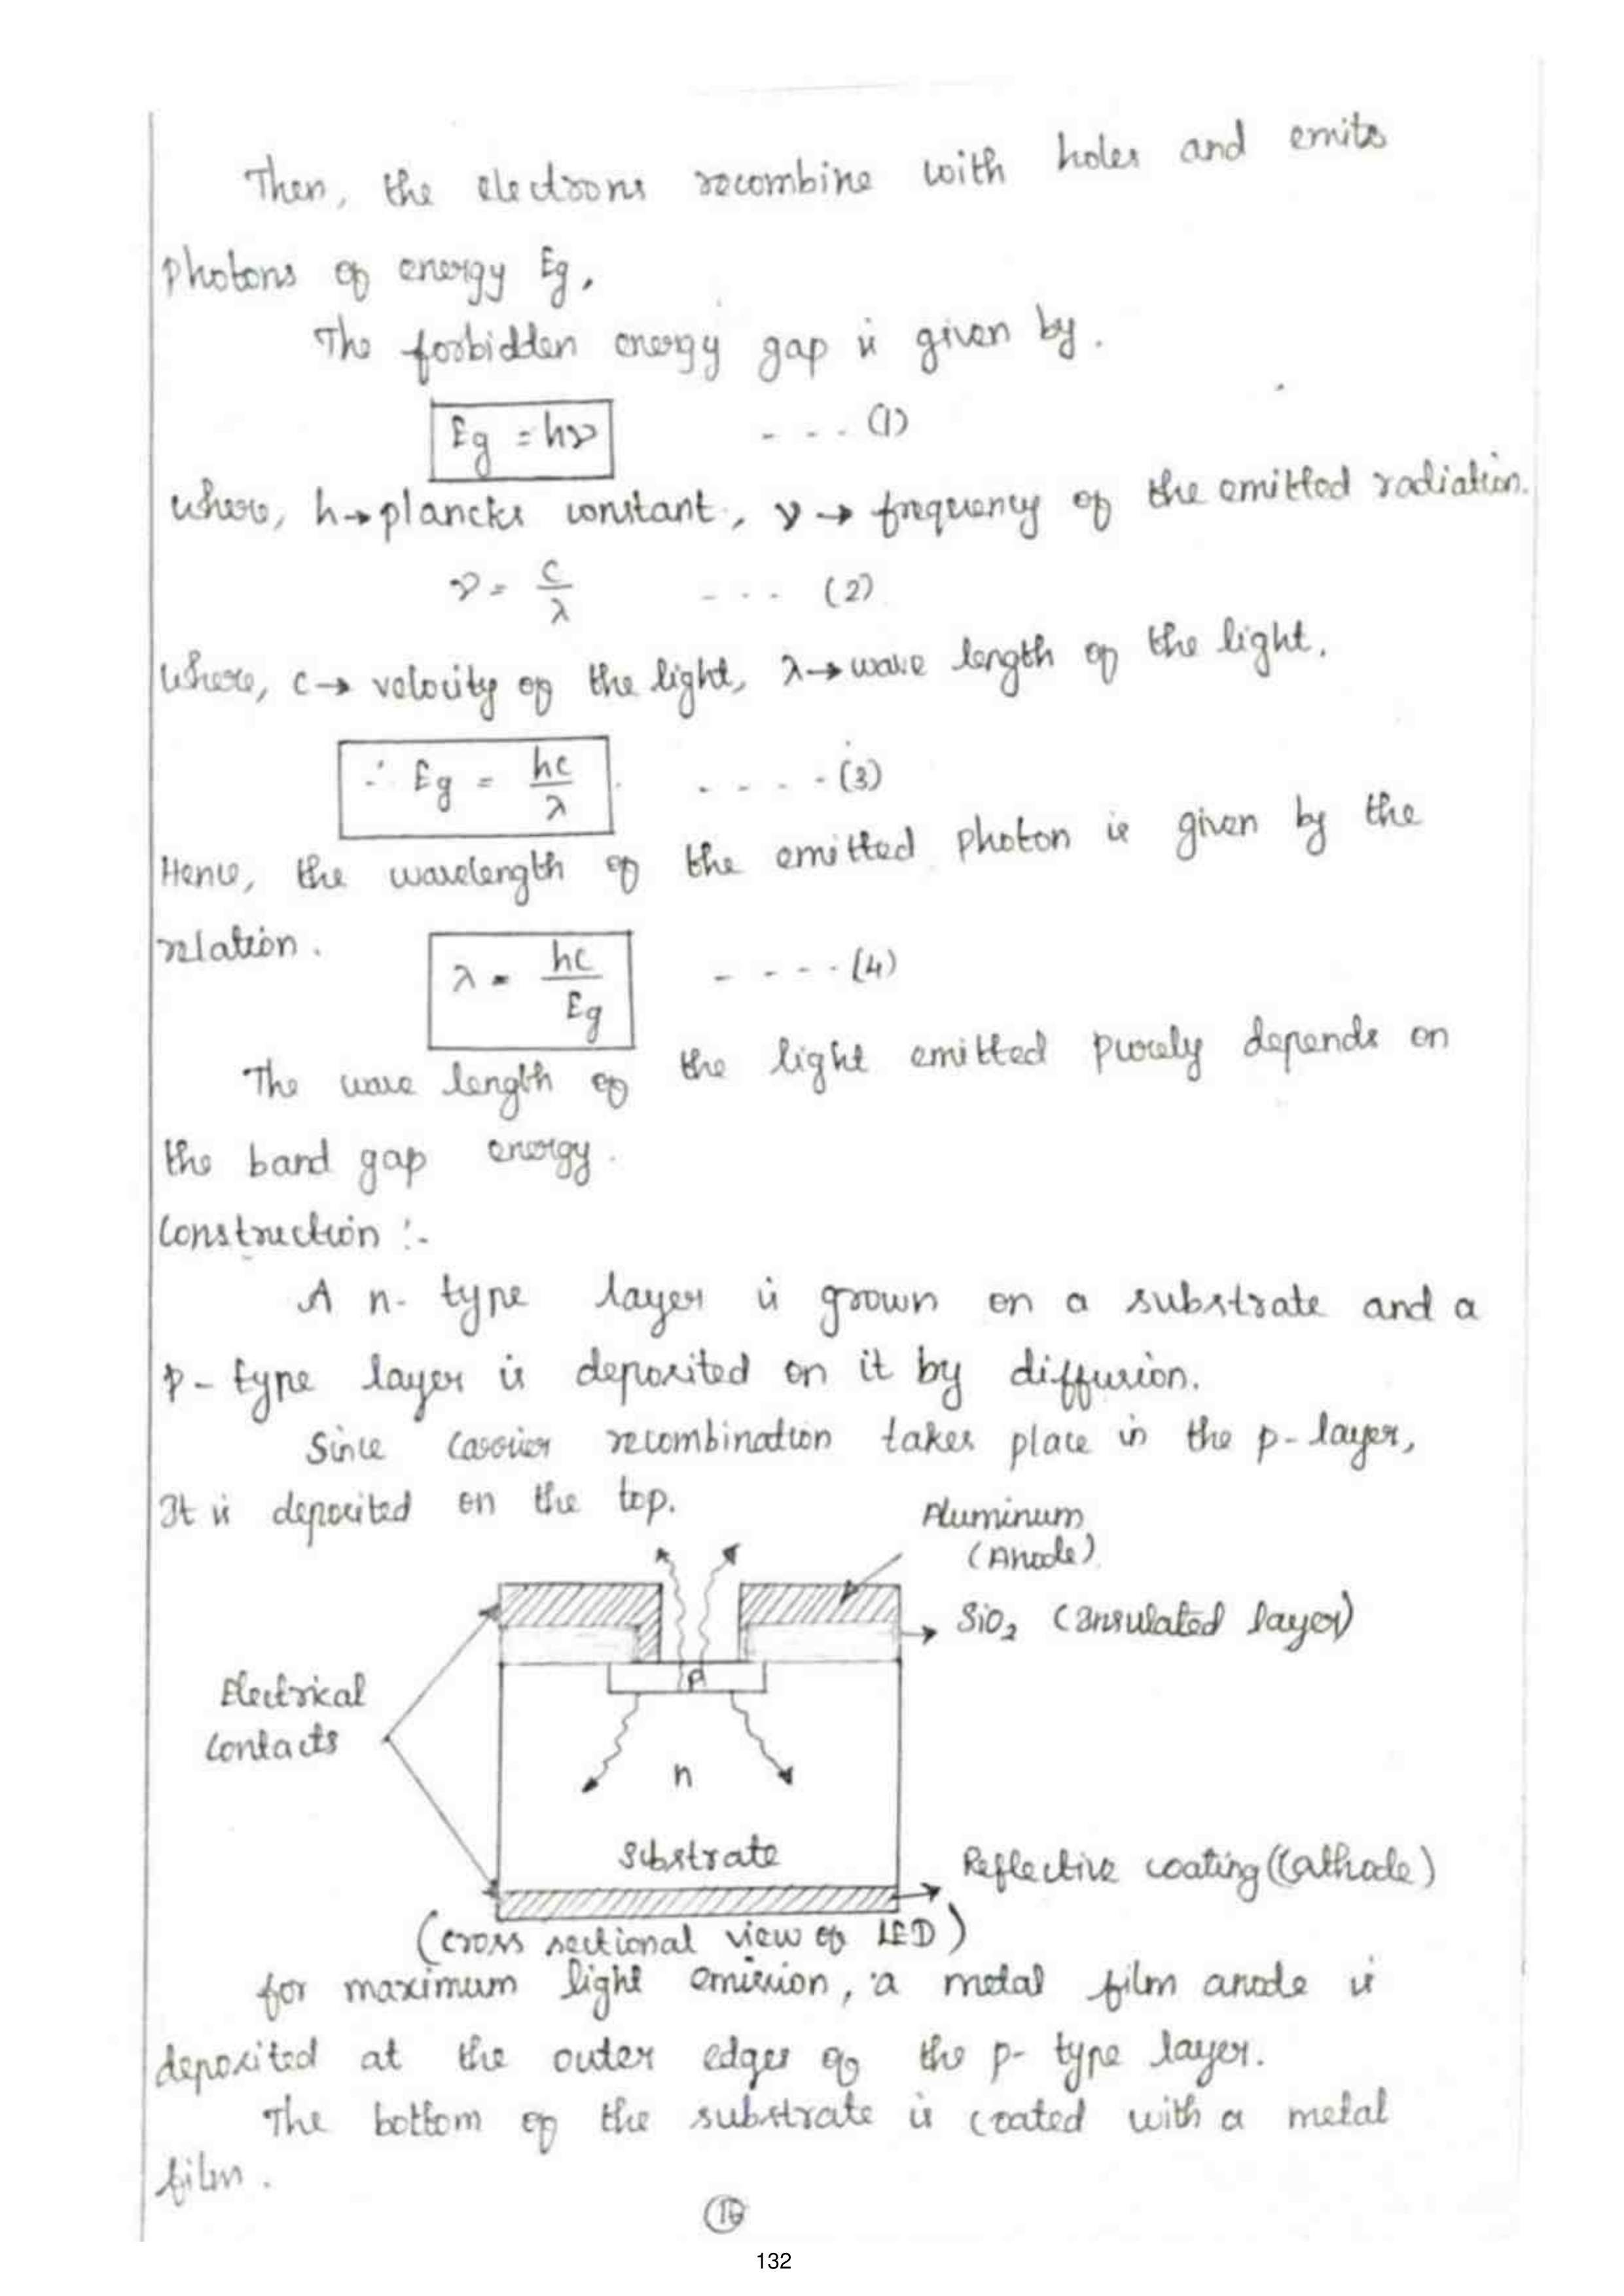 Then, the electrons recombine with holes and emits
photons of energy Eg.
The forbidden energy gap is given by.
Eg = hν - - - . (1)
where, h→plancks constant, ν → frequency of the emitted radiation.
ν = c/λ - - - (2)
where, c→ velocity of the light, λ→ wave length of the light.
∴ Eg = hc/λ - - - - - (3)
Hence, the wavelength of the emitted photon is given by the
relation.
λ = hc/Eg - - - - - (4)
The wave length of the light emitted purely depends on
the band gap energy.
Construction :-
A n- type layer is grown on a substrate and a
p- type layer is deposited on it by diffusion.
Since carrier recombination takes place in the p- layer,
It is deposited on the top.
Aluminum
(Anode)
SiO₂ (Insulated layer)
P
Electrical
Contacts
n
Substrate
Reflective coating (Cathode)
(cross sectional view of LED)
for maximum light emission, a metal film anode is
deposited at the outer edges of the p- type layer.
The bottom of the substrate is coated with a metal
film.
132